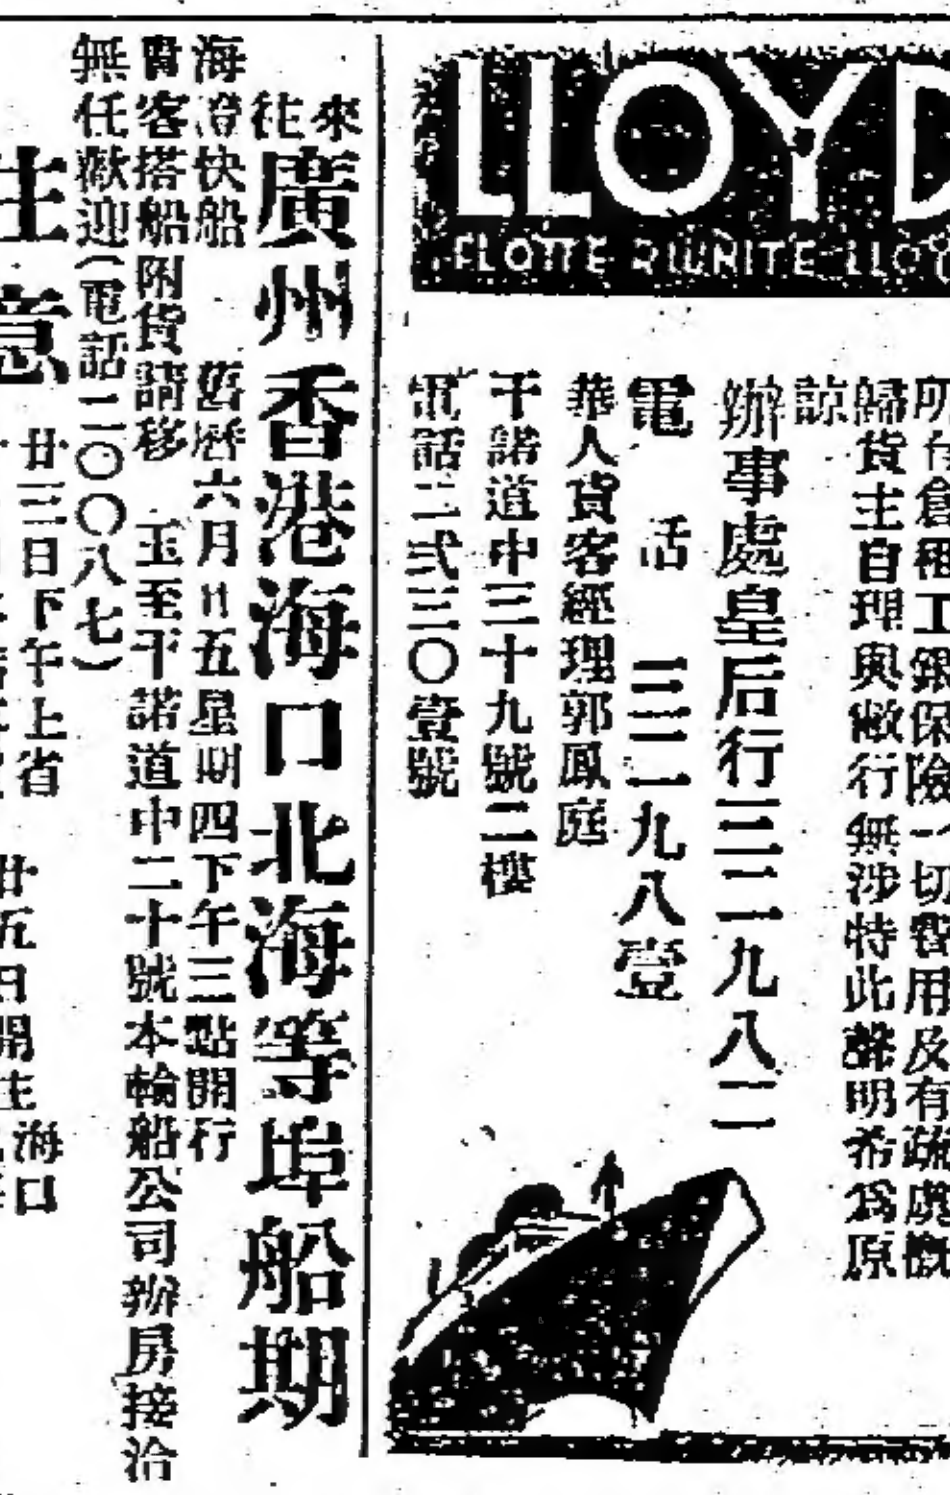 LLOYD
FLOTTE RIUNITE LLOY
歸貨主自理與敝行無涉特此聲明希爲原
諒
辦事處皇后行三二九八二
電話 三二一九八壹
華人貨客經理郭鳳庭
干諾道中三十九號二樓
電話二弍三〇壹號
來往廣州香港海口北海等埠船期
海澄快船 舊曆六月廿五星期四下午三點開行
貴客搭船附貨請移 玉至干諾道中二十號本輪船公司辦房接洽
無任歡迎（電話二〇〇八七）
注意
廿三日下午上省
海口
廿五日開